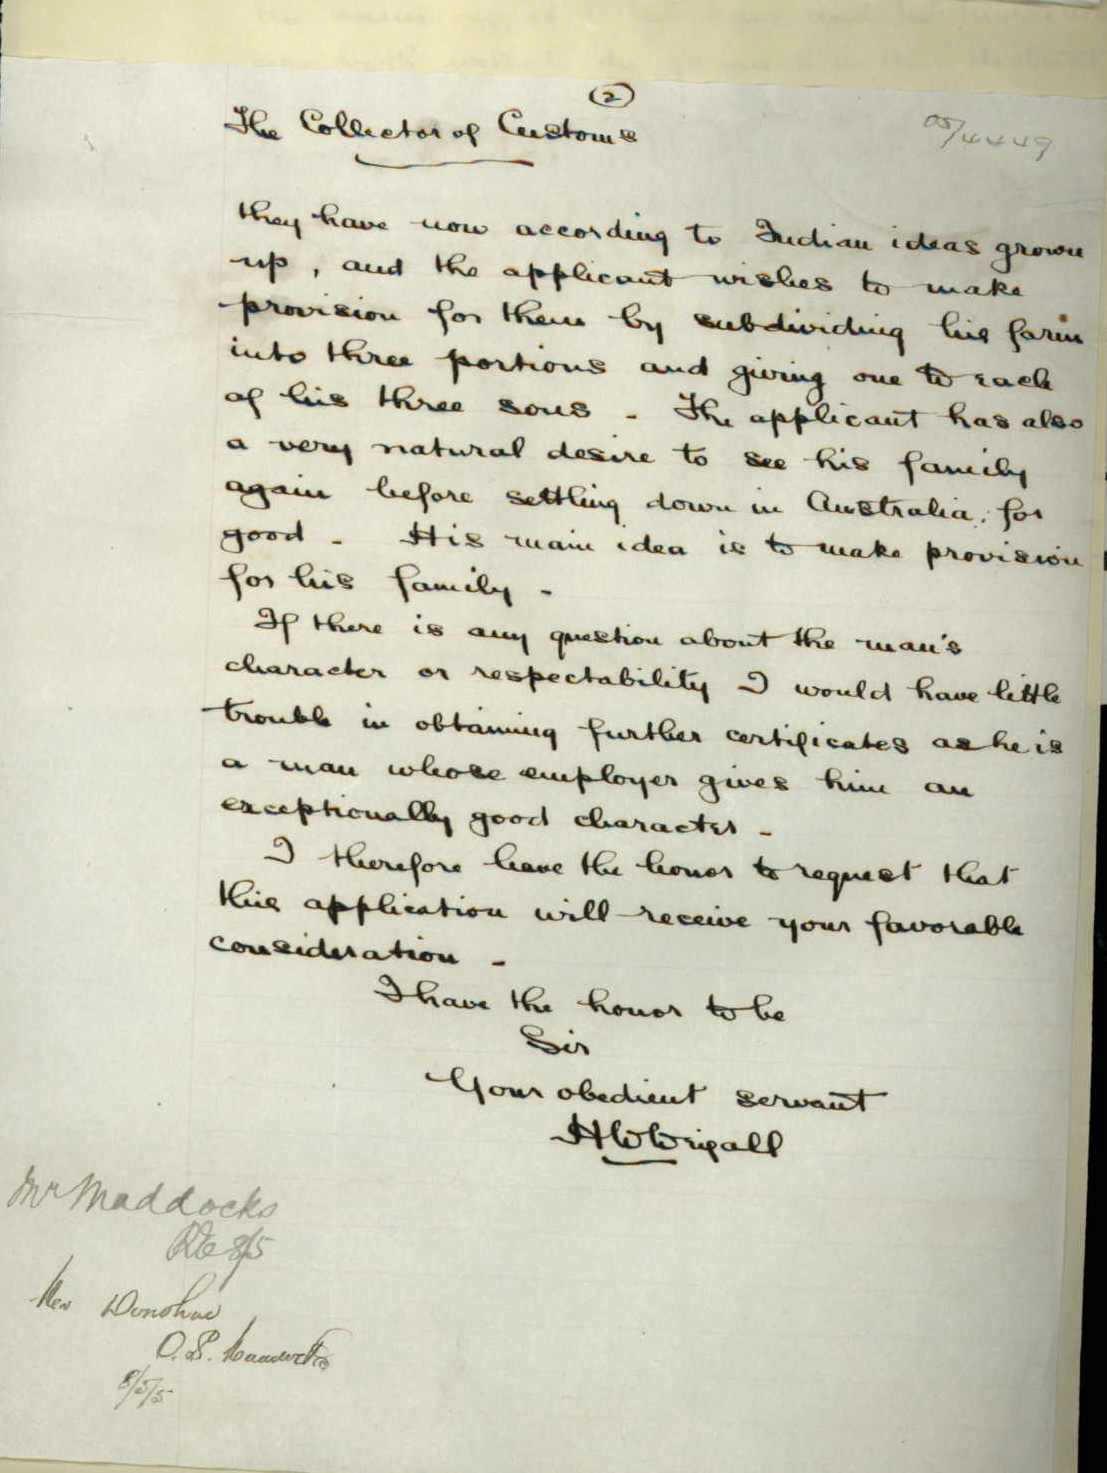 (2)
The Collector of Customs
05/4449
they have now according to Indian ideas grown
up, and the applicant wishes to make
provision for them by subdividing his farm
into three portions and giving one to each
of his three sons - The applicant has also
a very natural desire to see his family
again before settling down in Australia, for
good - His main idea is to make provision
for his family -
If there is any question about the man's
character or respectability I would have little
trouble in obtaining further certificates as he is
a man whose employer gives him an
exceptionally good character -
I therefore have the honor to request that
this application will receive your favorable
consideration -
I have the honor to be
Sir
Your obedient servant
HW Wrigall
Mr Maddocks
8/5
Donohue
8/5/5